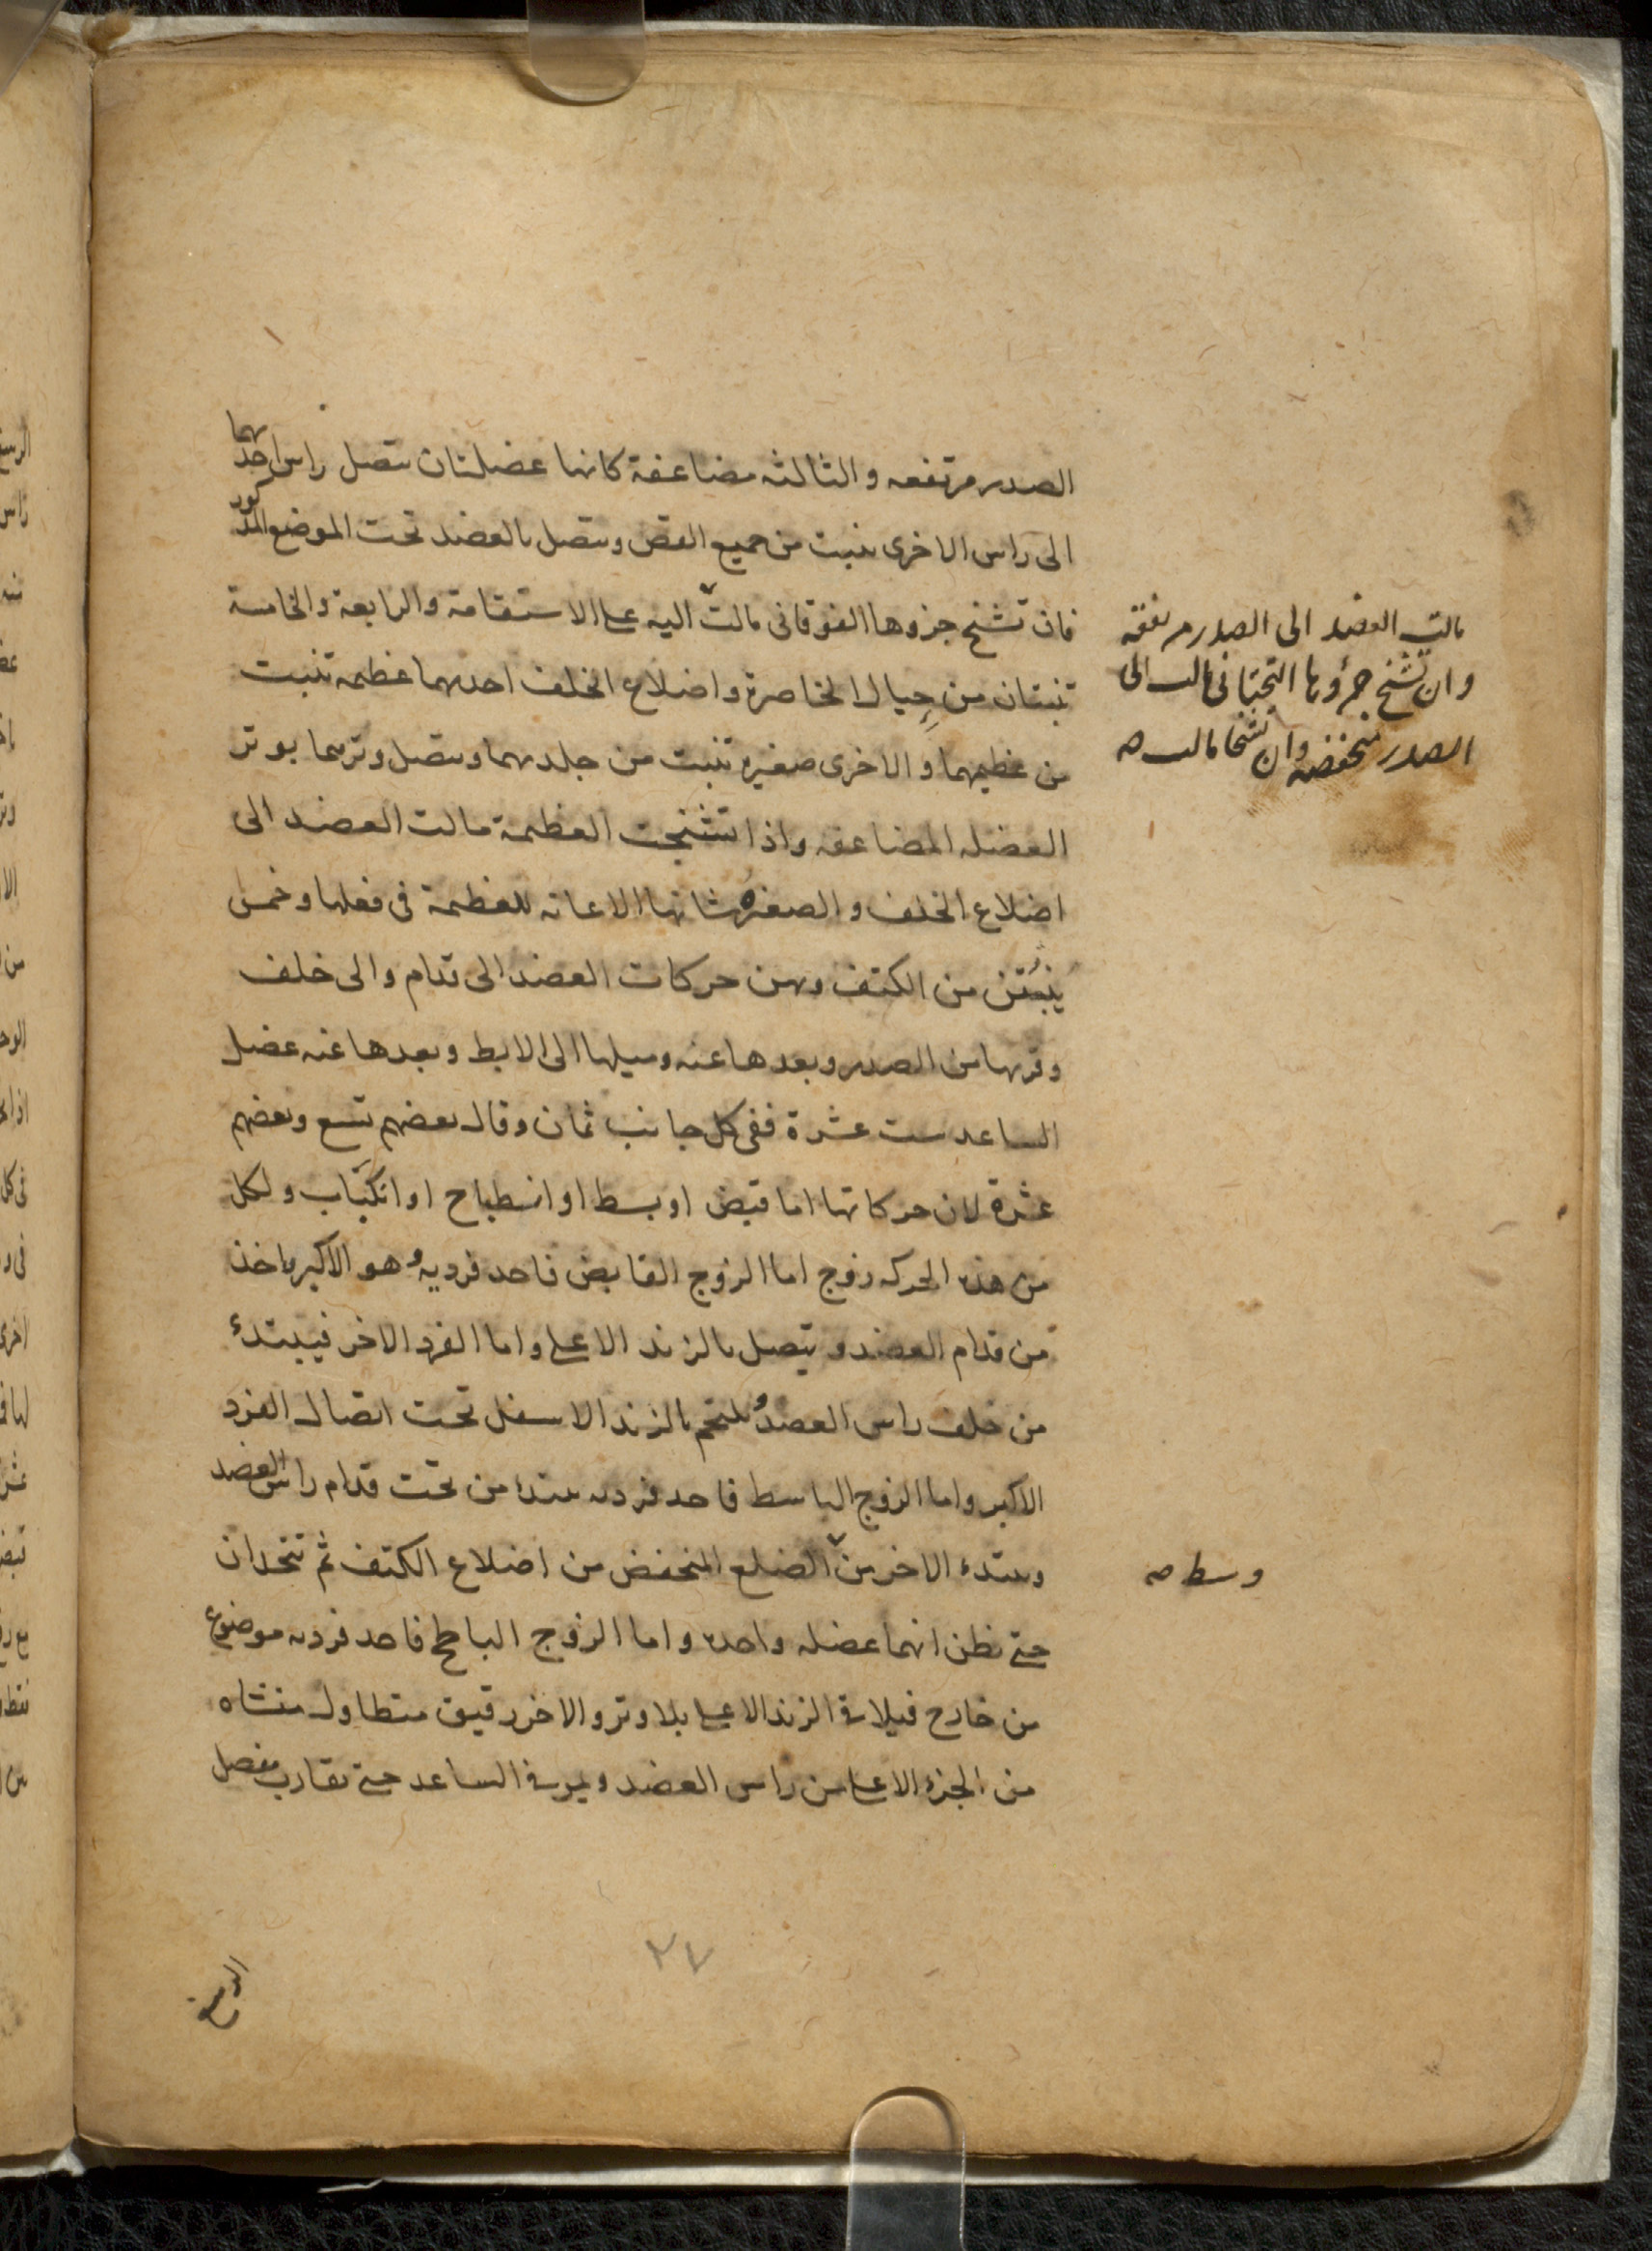 الصدر مرتفعه والثالثه مضاعفة كانها عضلتان تتصل راس احدهما
الى راس الاخرى تنبت من جميع القص وتتصل بالعضد تحت الموضع المذكور
فان تشنج جزوها الفوقانى مالت اليه على الاستقامة والرابعة والخامسة
تنبتان من حِيال الخاصرة واضلاع الخلف احدهما عظيمه تنبت
من عظيمهما والاخرى صغيره تنبت من جلدهما وتتصل وترهما بوتر
العضله المضاعفه واذا تشنجت العظيمة مالت العضد الى
اضلاع الخلف والصغيرة شانها الاعانه للعظيمة فى فعلها وخمس
ينبُتن من الكتف وبهن حركات العضد الى قدام والى خلف
وقربها من الصدر وبعدها عنه وميلها الى الابط وبعدها عنه عضل
الساعد ست عشرة ففى كل جانب ثمان وقال بعضهم تسع وبعضهم
عشرة لان حركاتها اما قبض او بسط او انسطباح او انكبَاب ولكل
من هذه الحركه زوج اما الزوج القابض فاحد فرديه وهو الاكبر ياخذ
من قدام العضد و يتصل بالزند الاعلى واما الفرد الاخر فيبتدئ
من خلف راس العضد و يلتحم بالزند الاسفل تحت اتصال الفرد
الاكبر واما الزوج الباسط فاحد فرديه يبتدء من تحت قدام راس العضد
ويبتدء الاخر من الضلع المنخفض من اضلاع الكتف ثم تتحدان
حتى نظن انهما عضله واحده واما الزوج الباطح فاحد فرديه موضوع
من خارج فيلاقى الزند الاعلى بلا وتر والاخر رقيق متطاول منشاه
من الجزء الاعلى من راس العضد ويمر فى الساعد حتى يقارب مفصل
الرسغ
٢٧
مالت العضد الى الصدر مرتفعه
وان تشنج جزؤها التحتانى مالت الى
الصدر منخفضه وان تشنجا مالت صه
وسط صه